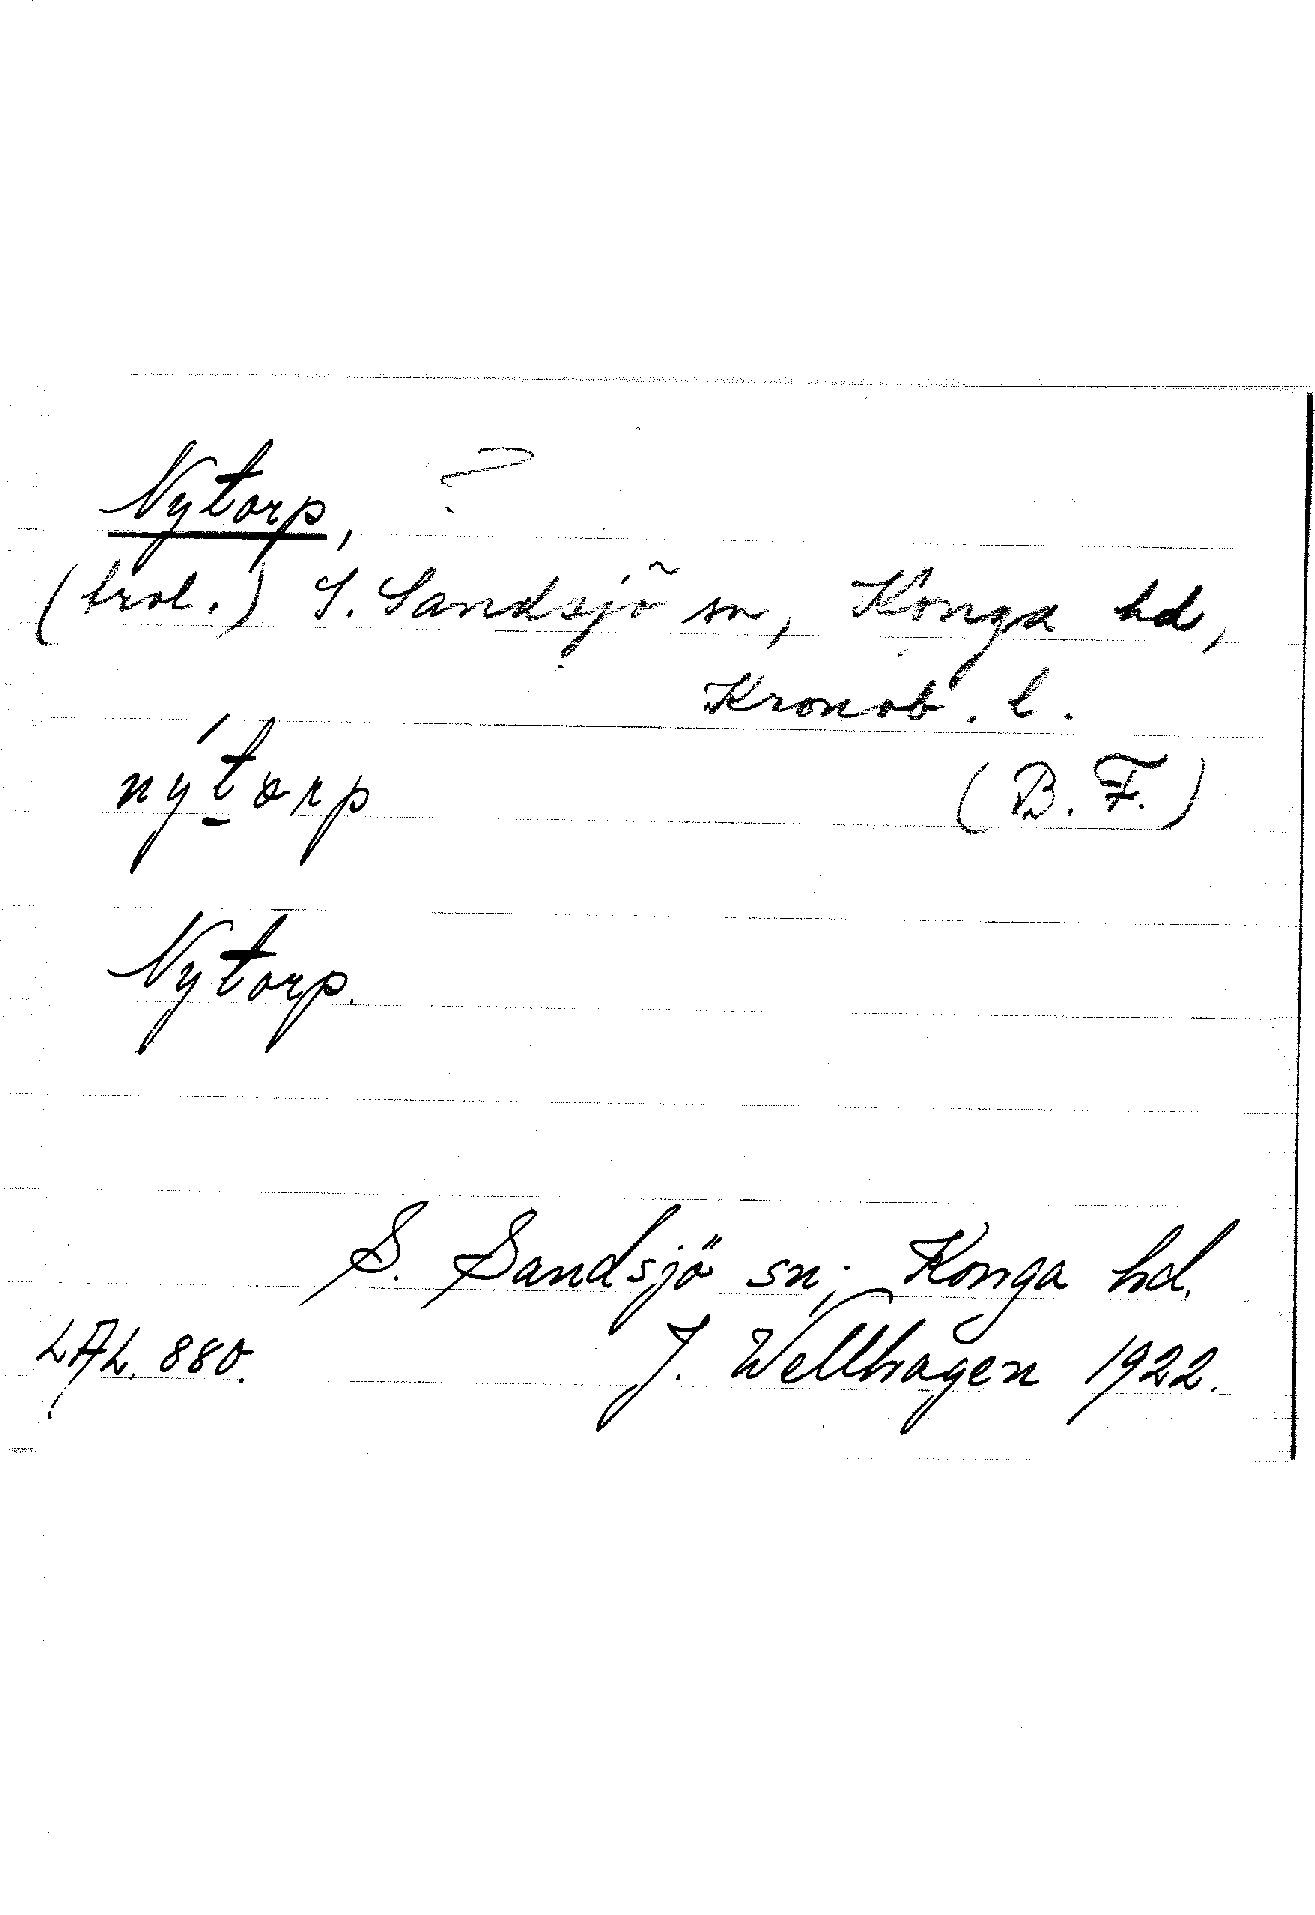 Nytorp, ?
(trol.) S. Sandsjö sn, Konga hd,
Kronob. l.
nýtorp (B. F.)
Nytorp.
S. Sandsjö sn; Konga hd.
LAL. 880. J. Wellhagen 1922.